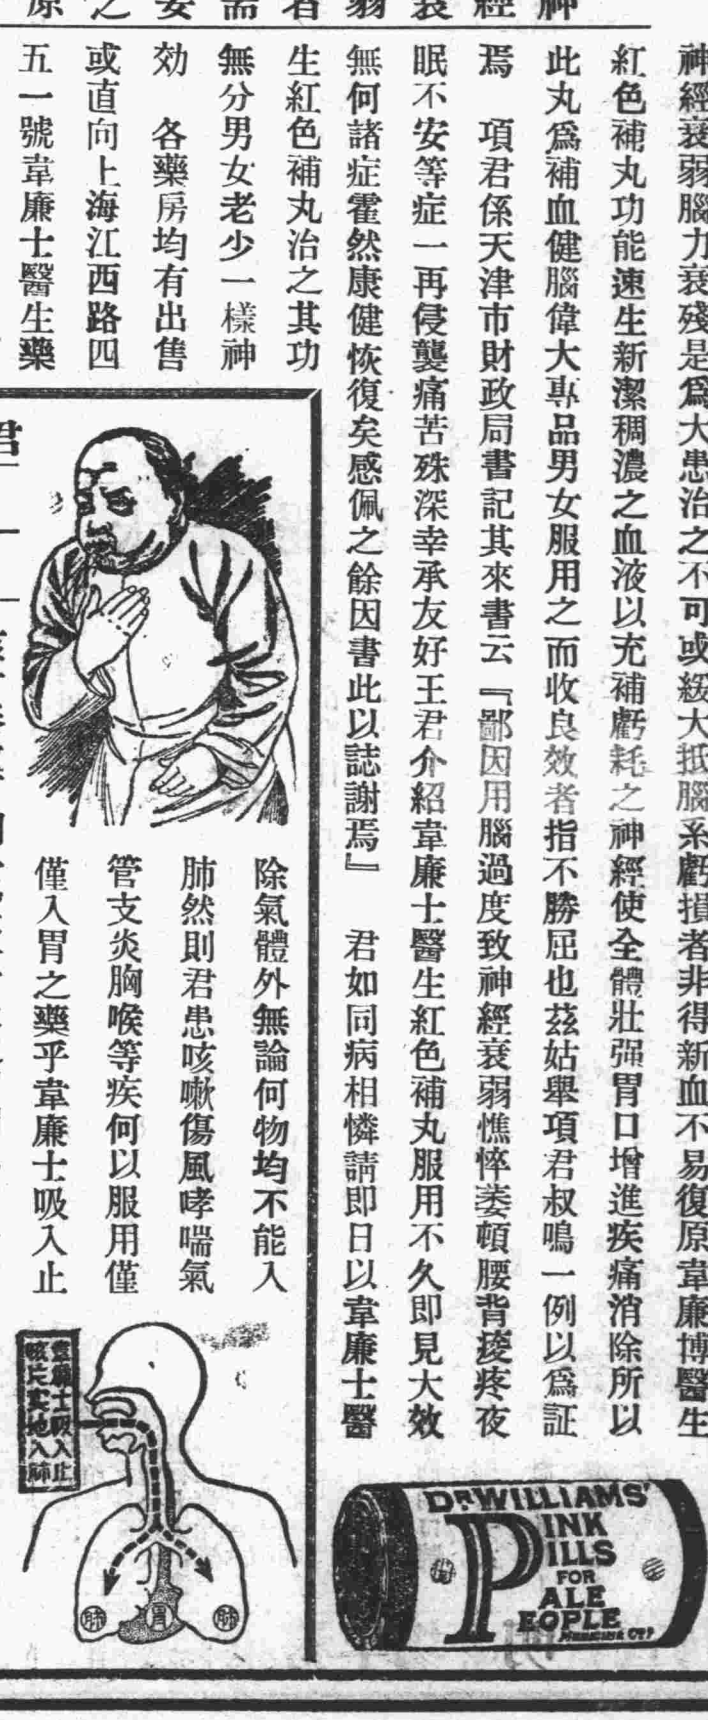 神經衰弱者需要之原
神經衰弱腦力衰殘是爲大患治之不可或緩大抵腦系虧損者非得新血不易復原韋廉博醫生
紅色補丸功能速生新潔稠濃之血液以充補虧耗之神經使全體壯强胃口增進疾痛消除所以
此丸爲補血健腦偉大專品男女服用之而收良效者指不勝屈也茲姑舉項君叔鳴一例以爲証
焉　項君係天津市財政局書記其來書云『鄙因用腦過度致神經衰弱憔悴萎頓腰背痠疼夜
眠不安等症一再侵襲痛苦殊深幸承友好王君介紹韋廉士醫生紅色補丸服用不久即見大效
無何諸症霍然康健恢復矣感佩之餘因書此以誌謝焉』　君如同病相憐請即日以韋廉士醫
生紅色補丸治之其功
無分男女老少一樣神
効　各藥房均有出售
或直向上海江西路四
五一號韋廉士醫生藥
君
除氣體外無論何物均不能入
肺然則君患咳嗽傷風哮喘氣
管支炎胸喉等疾何以服用僅
僅入胃之藥乎韋廉士吸入止
韋廉士吸入止
咳片實地入肺
肺
胃
肺
DR WILLIAMS'
PINK
PILLS
FOR
PALE
PEOPLE
MEDICINE Co